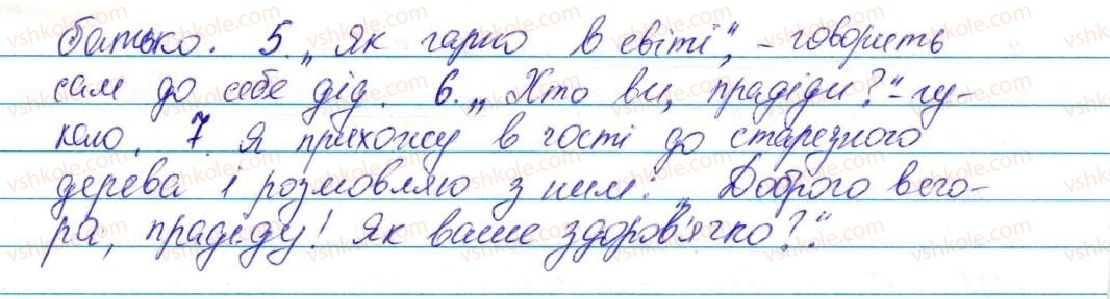 батько. 5. „Як гарно в світі", - говорить
сам до себе дід. 6. „Хто ви, прадіди?" - гу-
кало. 7. Я прихожу в гості до старезного
дерева і розмовляю з ним: „Доброго вечо-
ра, прадіду! Як ваше здоров'ячко?".